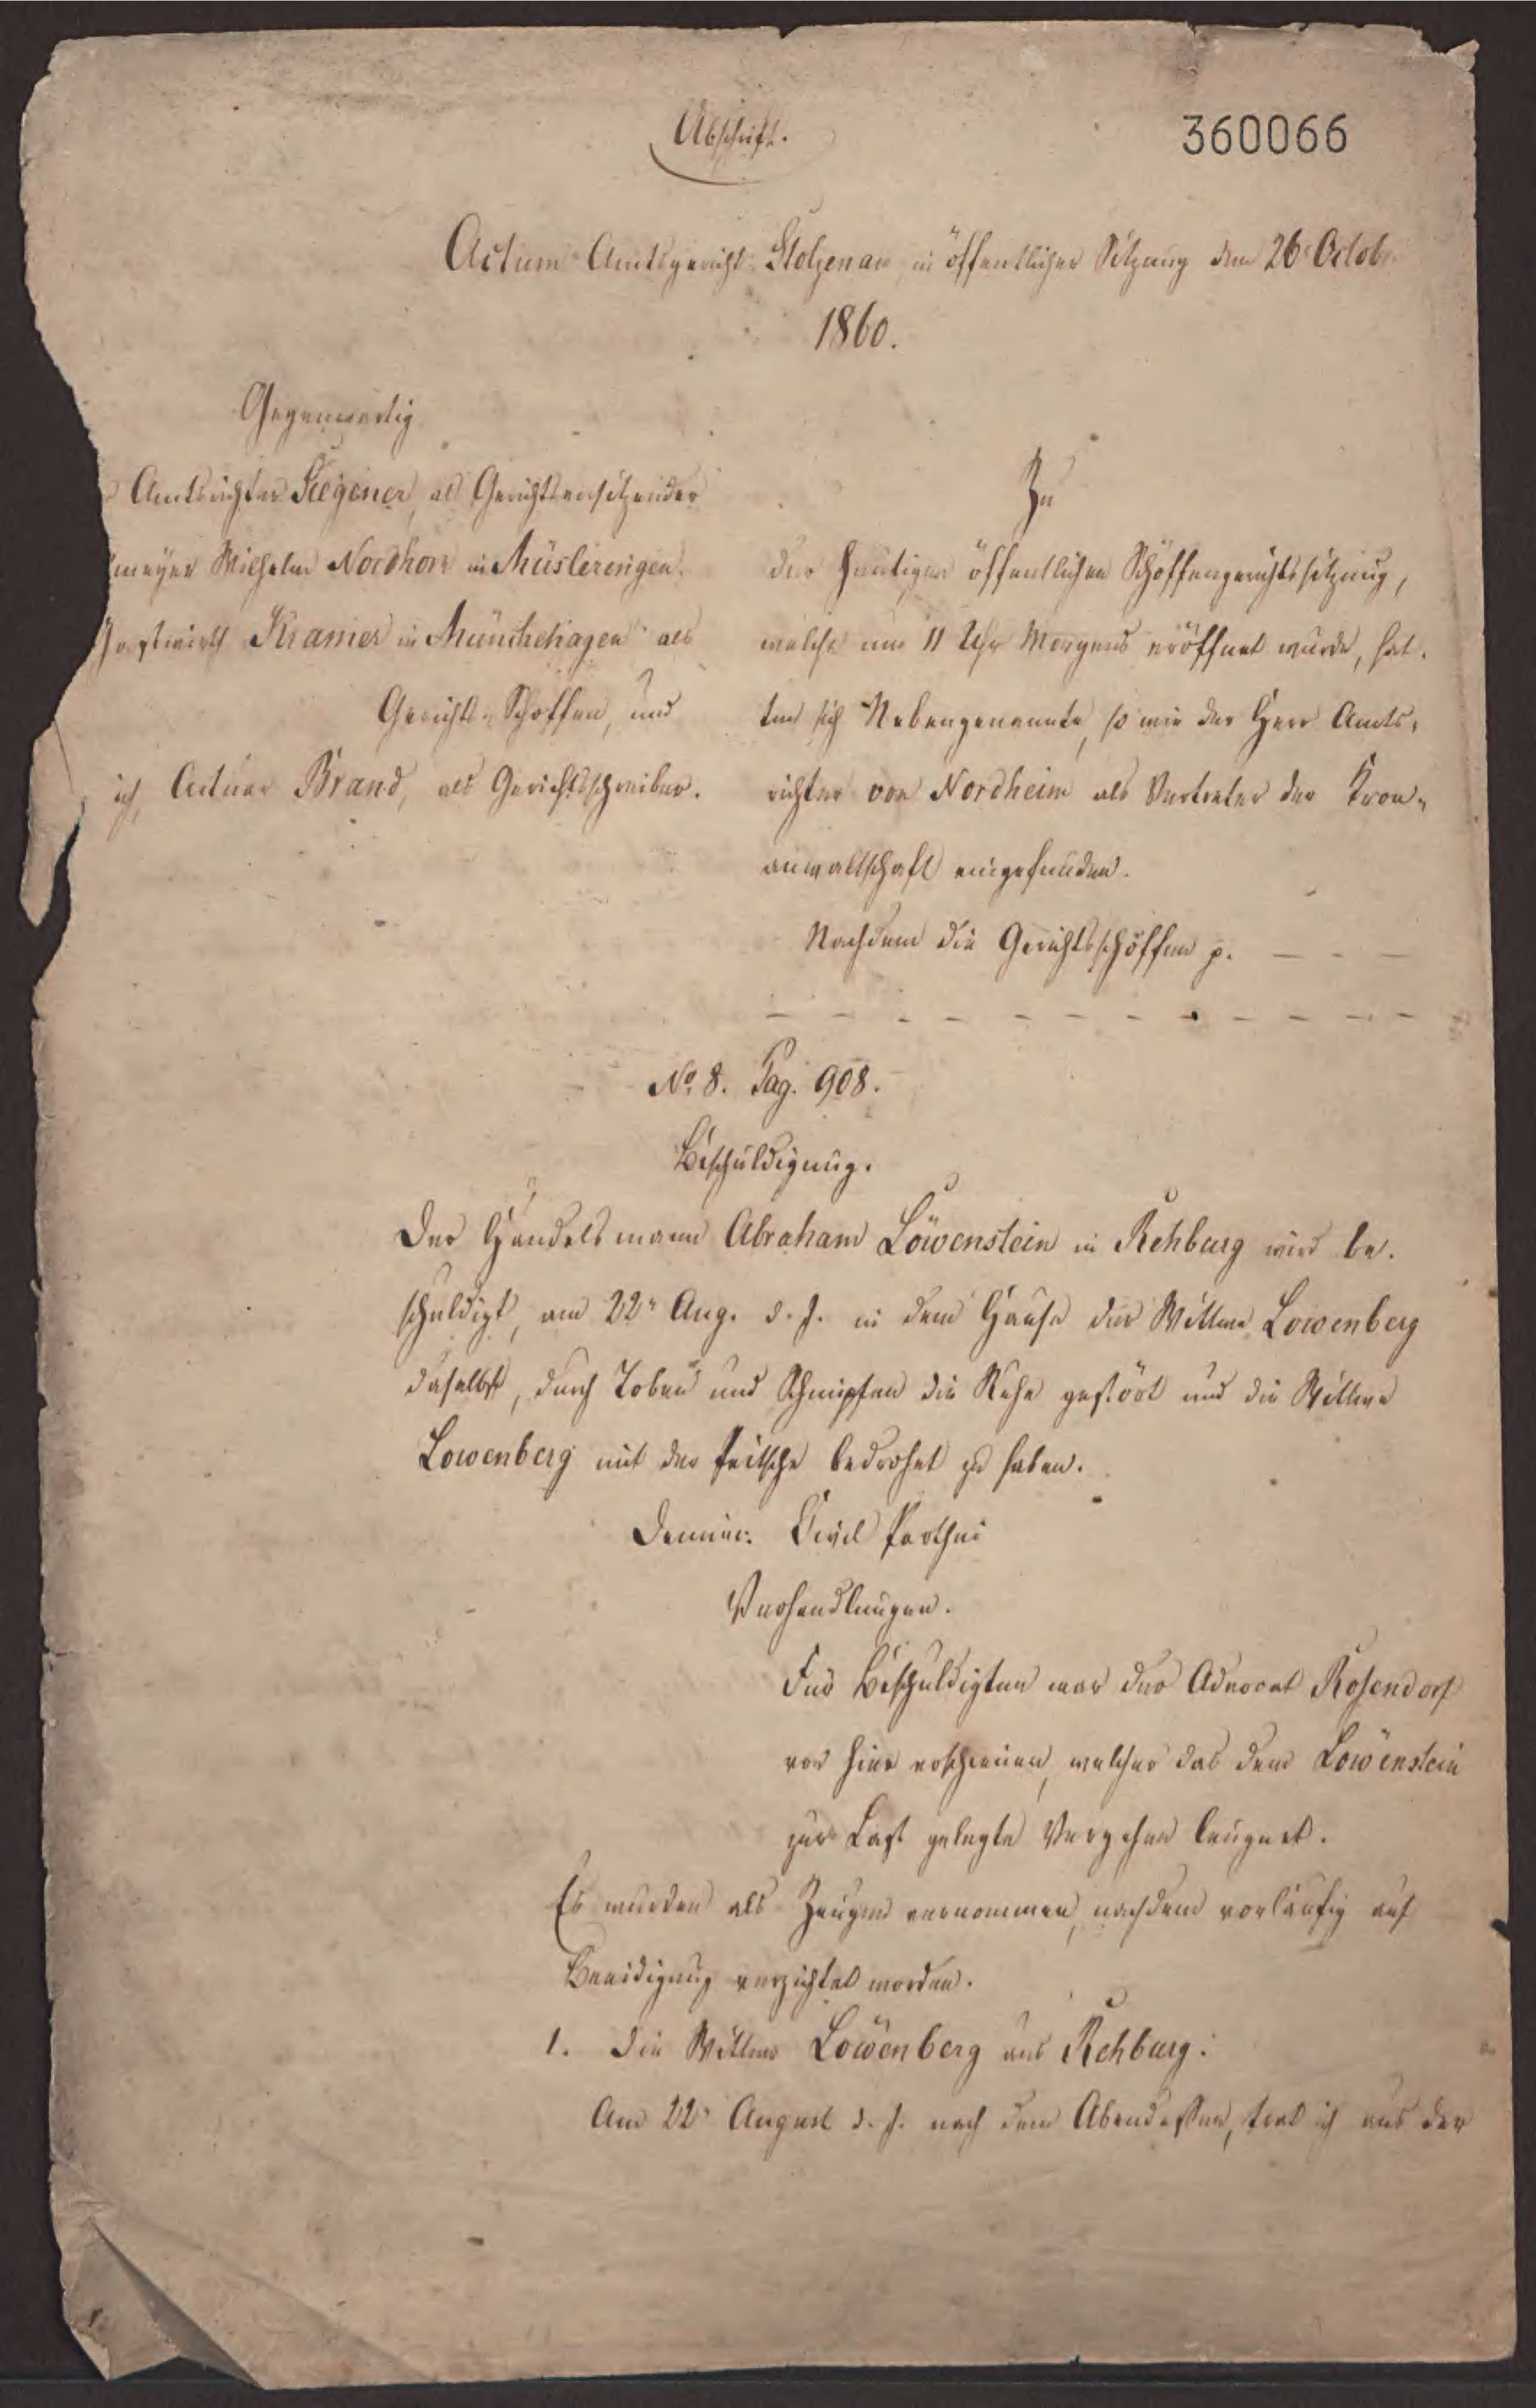 Abschrift.
360066
Actum Amtsgericht Stolzenau in öffentlicher Sitzung den 26n Octob
1860.
Gegenwärtig
Amtsrichter als Gerichtsvorsitzender
meyer Wilhelm Nordhorn in Müsleringen
Gastwirth Kramer in Münchehagen als
Gerichts-Schöffen, und
ich, Actuar Brand, als Gerichtsschreiber.
Zu
der heutigen öffentlichen Schöffengerichtssitzung,
welche um 11 Uhr Morgens eröffnet wurde, hat-
ten sich Nebengenannte, so wie der Herr Amts-
richter von Nordheim als Vertreter der Kron-
anwaltschaft eingefunden.
Nachdem die Gerichtsschöffen p. — - —
— — - — — — — - — — — —
No. 8. Pag. 908.
Beschuldigung.
Der Handelsmann Abraham Löwenstein in Rehburg wird be-
schuldigt, am 22n Aug. d. J. in dem Hause der Wittwe Lowenberg
daselbst, durch Toben und Schimpfen die Ruhe gestört und die Wittwe
Lowenberg mit der Peitsche bedrohet zu haben.
Civil Parthei
Verhandlungen.
Für Beschuldigten war der Advocat Rosendorf
von hier erschienen, welcher das dem Löwenstein
zur Last gelegte Vergehen leugnet.
Es wurden als Zeugen vernommen, nachdem vorläufig auf
Beeidigung verzichtet worden.
1. Die Wittwe Löwenberg aus Rehburg:
Am 22n August d. J. nach dem Abendessen, trat ich aus der